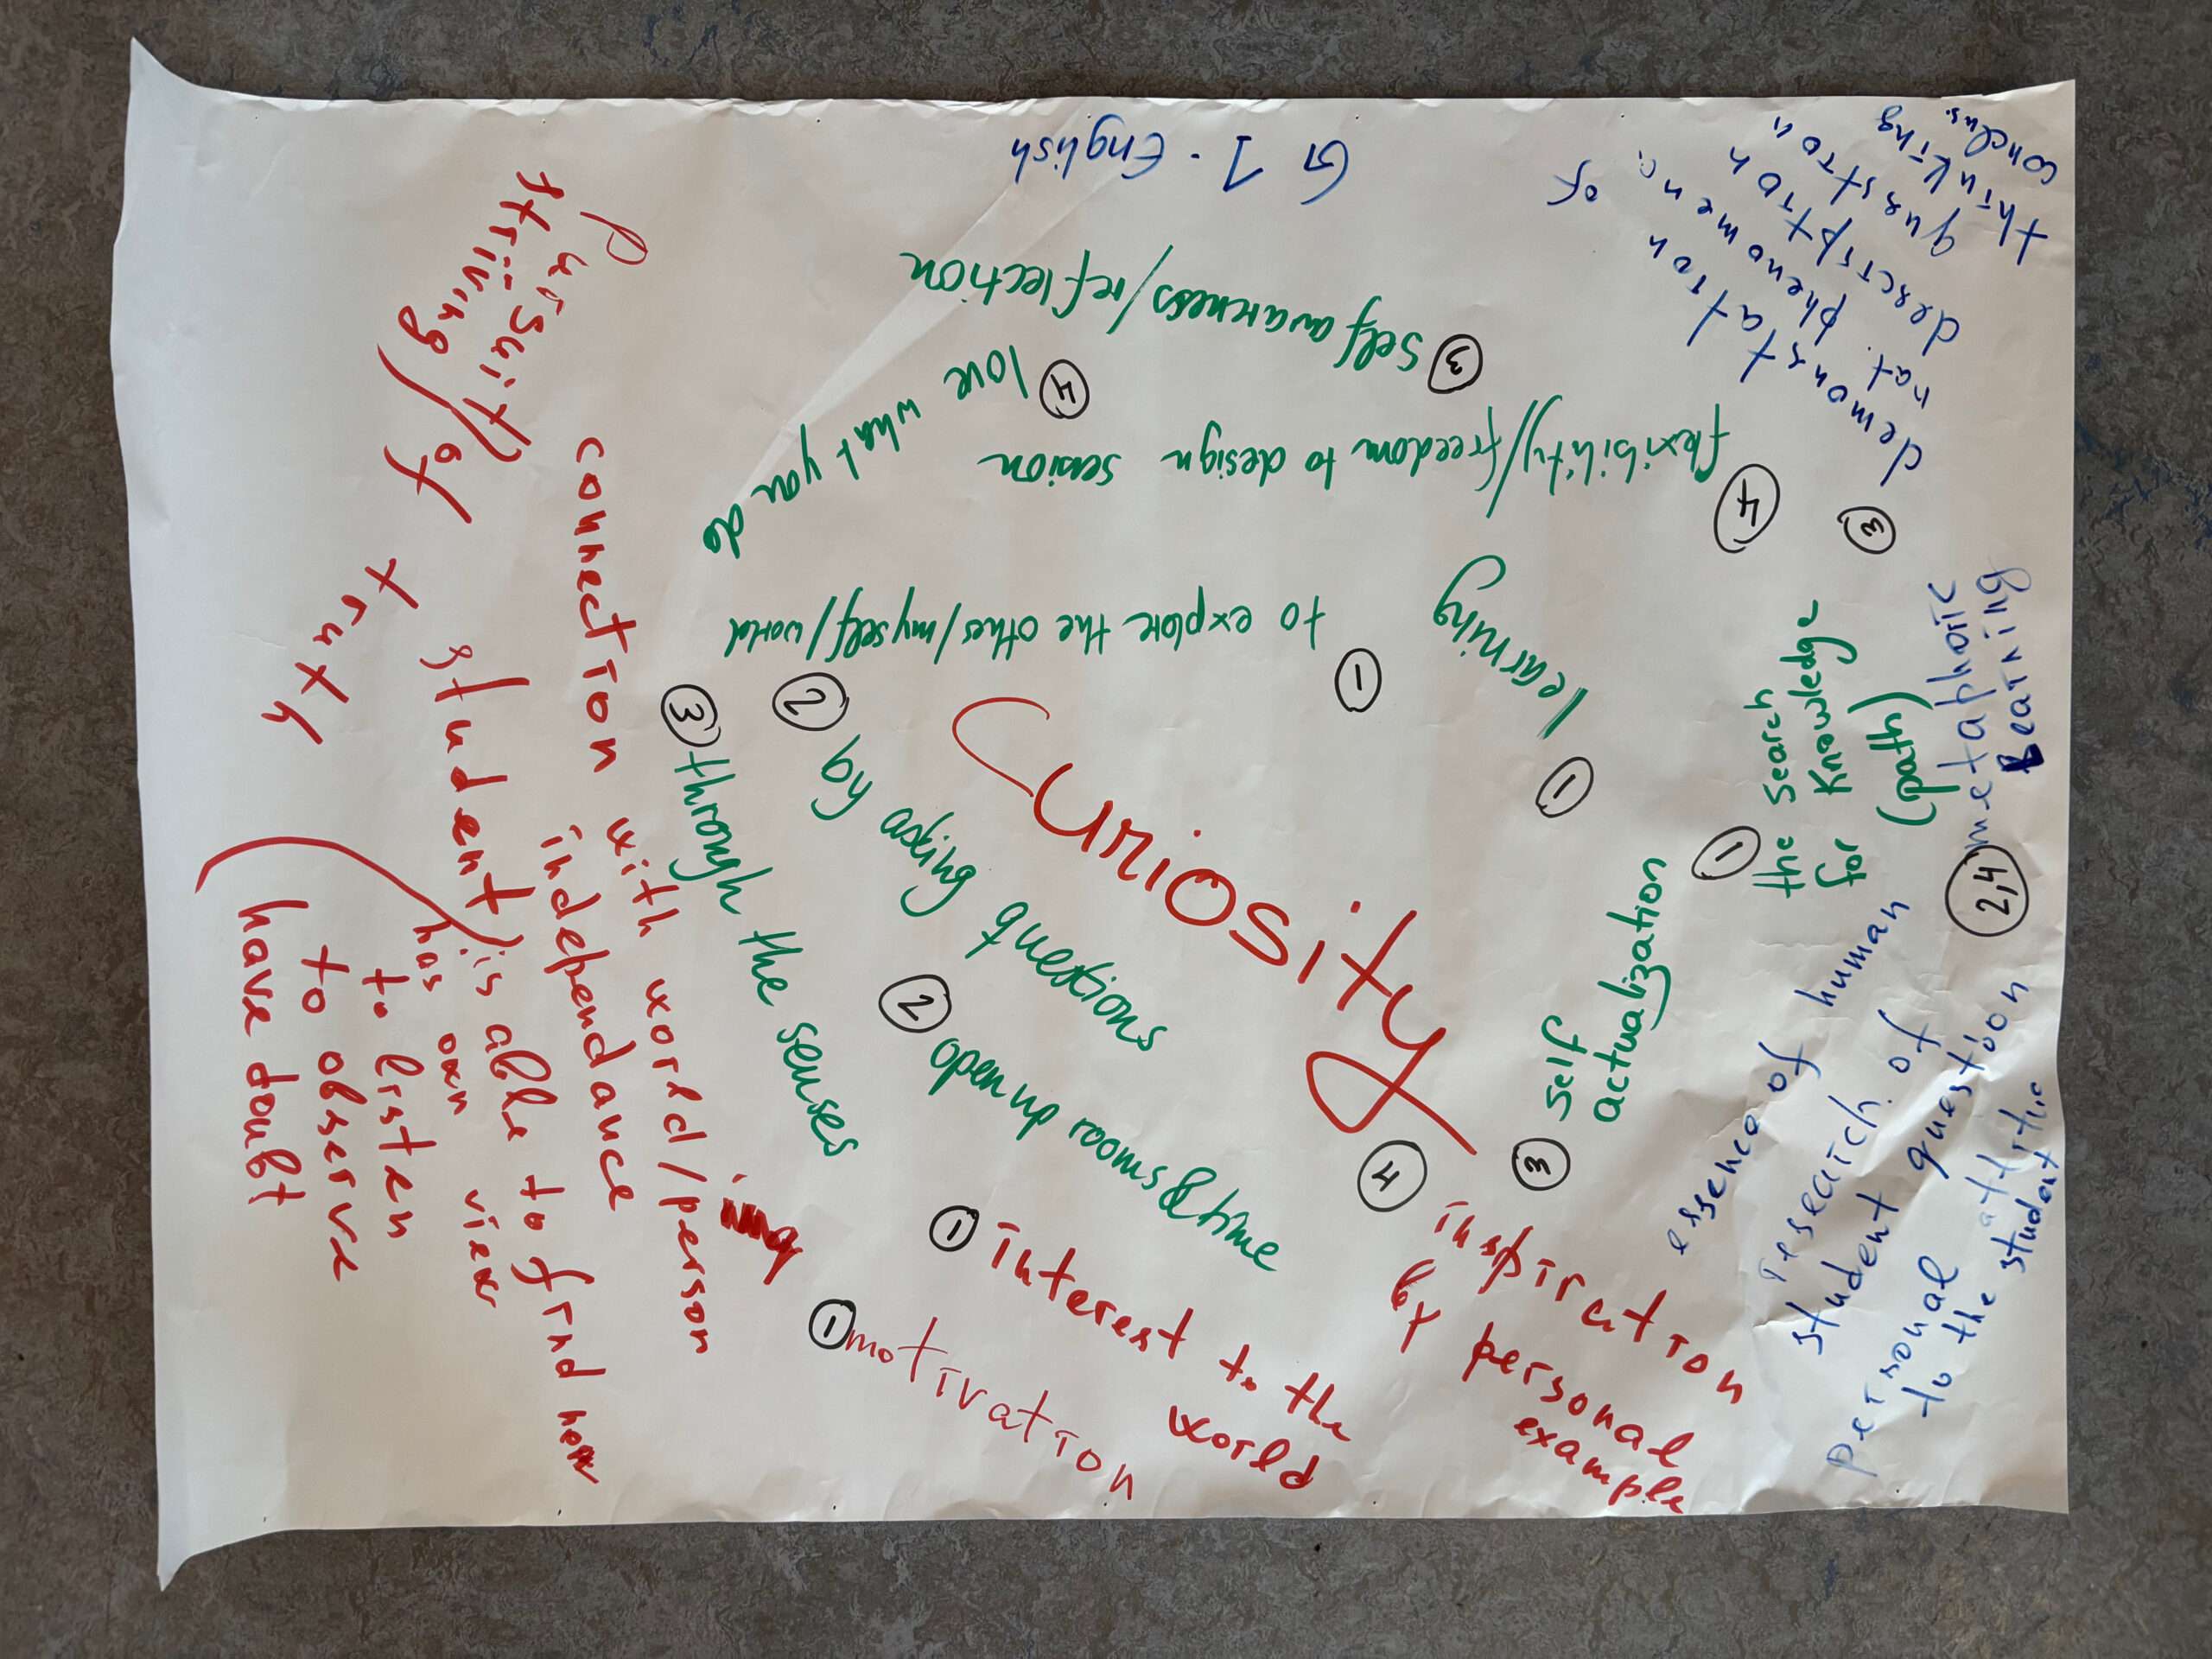 G1 - English
Curiosity
① to explore the other/myself/world
② by asking questions
③ through the senses
② open up rooms & time
① interest to the
world
① motivation
④ inspiration
by personal
example
③ self
actualization
① learning
① the search
for knowledge
(path)
④ flexibility/freedom to design session
③ self awareness/reflection
④ love what you do
③ demonstration of
nat. phenomena.
description
question
thinking
conclus.
2,4 metaphoric
Learning
essence of human
research of
student question
personal
to the student
pursuit)
striving / of
truth
connection with world/person
independance
student is able to find how
has own view
to listen
to observe
have doubt
ing